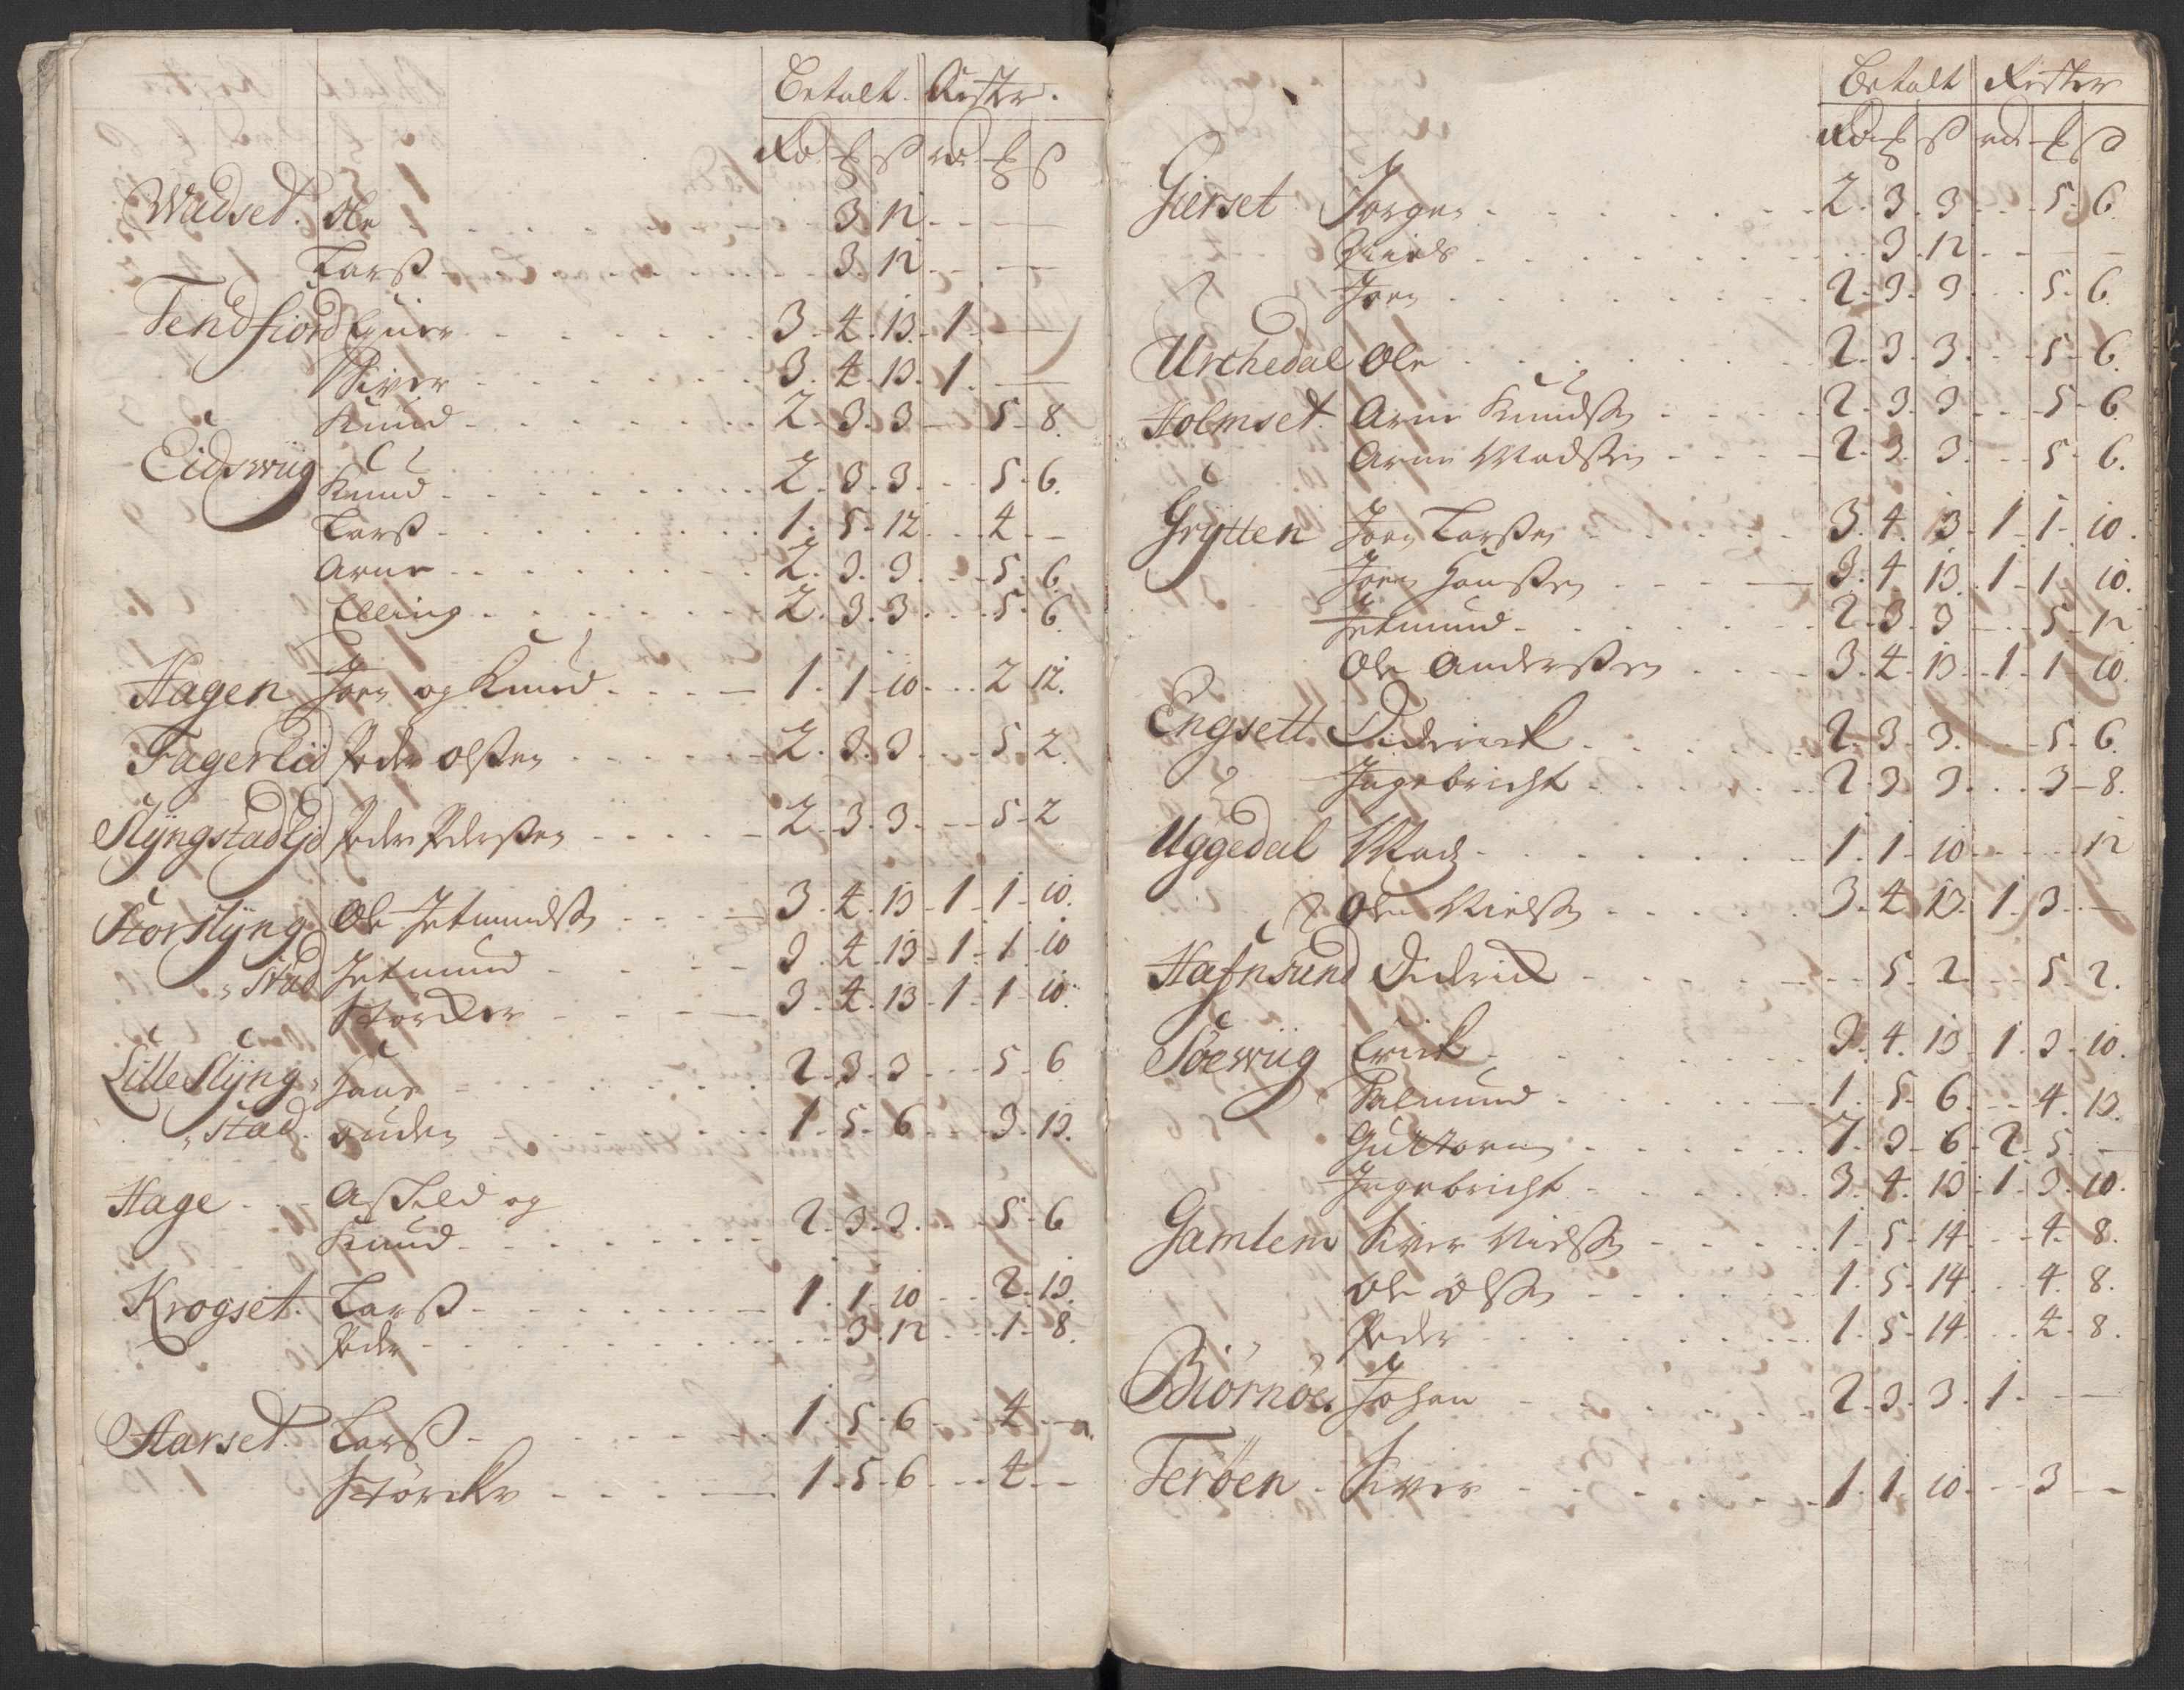 Betalt. Rester.
Rd ß rd ß
Wadset. Ole . . . 3. 12
Larß . . . 3. 12
Tendfiord Ejner . . . 3. 4. 13. 1
Siver . . . 3. 4. 13. 1
Knud . . . 2. 3. 3 5. 8.
Eidswiig
Knud . . . 2. 3. 3. 5. 6.
Larß . . . 1. 5. 12 4
Arne . . . 2. 3. 3. 5. 6.
Elling . . . 2. 3. 3. 5. 6.
Hagen Joen og Knud . . . 1. 1. 10. 2. 12.
Fagerlid Peder Olßen . . . 2. 3. 3. 5. 2.
Slÿngstadljd Peder Pederßen . . . 2. 3. 3. 5. 2
Storslÿng Ole Jetmundß . . . 3. 4. 13. 1. 1. 10.
stad Jetmund . . . 3. 4. 13. 1. 1. 10
Storcker . . . 3. 4. 13. 1. 1. 10.
Lille Slÿng Hans . . . 2. 3. 3. 5. 6
stad. . . . 1. 5. 6. 3. 13.
Hage Aßild og
Knud . . . 2. 3. 3. 5. 6
Krogset. Larß . . . 1. 1. 10 2. 13.
Peder . . . 3. 12 1. 8.
Aarset. Larß . . . 1. 5. 6. 4.
Störcker . . . 1. 5. 6. 4.
Betalt Rester
Rd ß rd ß
Gierset Jørgen . . . 2. 3. 3. 5. 6.
Niels . . . 3. 12
Joen . . . 2. 3. 3. 5. 6.
Urchedal Ole . . . 2. 3. 3. 5. 6.
Holmset. Arne Knudßen . . . 2. 3. 3. 5. 6.
Arne Madßen . . . 2. 3. 3. 5. 6.
Grÿtten Joen Larßen . . . 3. 4. 13. 1. 1. 10.
Joen Hanßen . . . 3. 4. 13. 1. 1. 10.
Jetmund . . . 2. 3. 3 5. 12
Ole Anderßen . . . 3. 4. 13. 1. 1. 10.
Engsett. Didrick . . . 2. 3. 3. 5. 6.
Ingebricht . . . 2. 3. 3. 3. 8.
Uggedal Mads . . . 1. 1. 10. 12
Ole Nielßen . . . 3. 4. 13. 1. 3.
Hafnsund Didrick . . . 5. 2. 5. 2.
Söewiig Erick . . . 3. 4. 13. 1. 3. 10.
Salmund . . . 1. 5. 6. 4. 13.
Guttorm . . . 7. 3. 6. 2. 5.
Ingebricht . . . 3. 4. 13. 1. 3. 10.
Gamlem Siver Nielßen . . . 1. 5. 14. 4. 8.
Ole Olßen . . . 1. 5. 14 4. 8.
Peder . . . 1. 5. 14. 4. 8.
Biörnöe Johan . . . 2. 3. 3. 1.
Feröen Siver . . . 1. 1. 10. 3